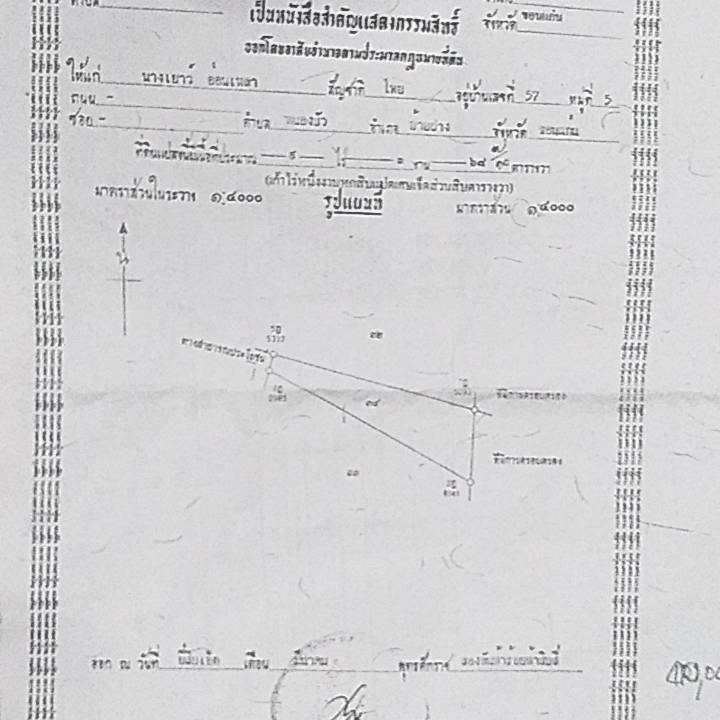 ตำบล
เป็นหนังสือสำคัญแสดงกรรมสิทธิ์
จังหวัด ขอนแก่น
ออกโดยอาศัยอำนาจตามประมวลกฎหมายที่ดิน
ให้แก่ นางเยาว์ สัญชาติ ไทย อยู่บ้านเลขที่ 57 หมู่ที่ 5
ถนน -
ซอย - ตำบล หนองบัว อำเภอ บ้านฝาง จังหวัด ขอนแก่น
ที่ดินแปลงนี้มีเนื้อที่ประมาณ ๙ ไร่ ๑ งาน ๖๘ ๗/๑๐ ตารางวา
(เก้าไร่หนึ่งงานหกสิบแปดเศษเจ็ดส่วนสิบตารางวา)
มาตราส่วนในระวาง ๑:๔๐๐๐ รูปแผนที่ มาตราส่วน ๑:๔๐๐๐
น
ทางสาธารณประโยชน์
มีการครอบครอง
มีการครอบครอง
ออก ณ วันที่ ยี่สิบเอ็ด เดือน มีนาคม พุทธศักราช สองพันห้าร้อยห้าสิบสี่